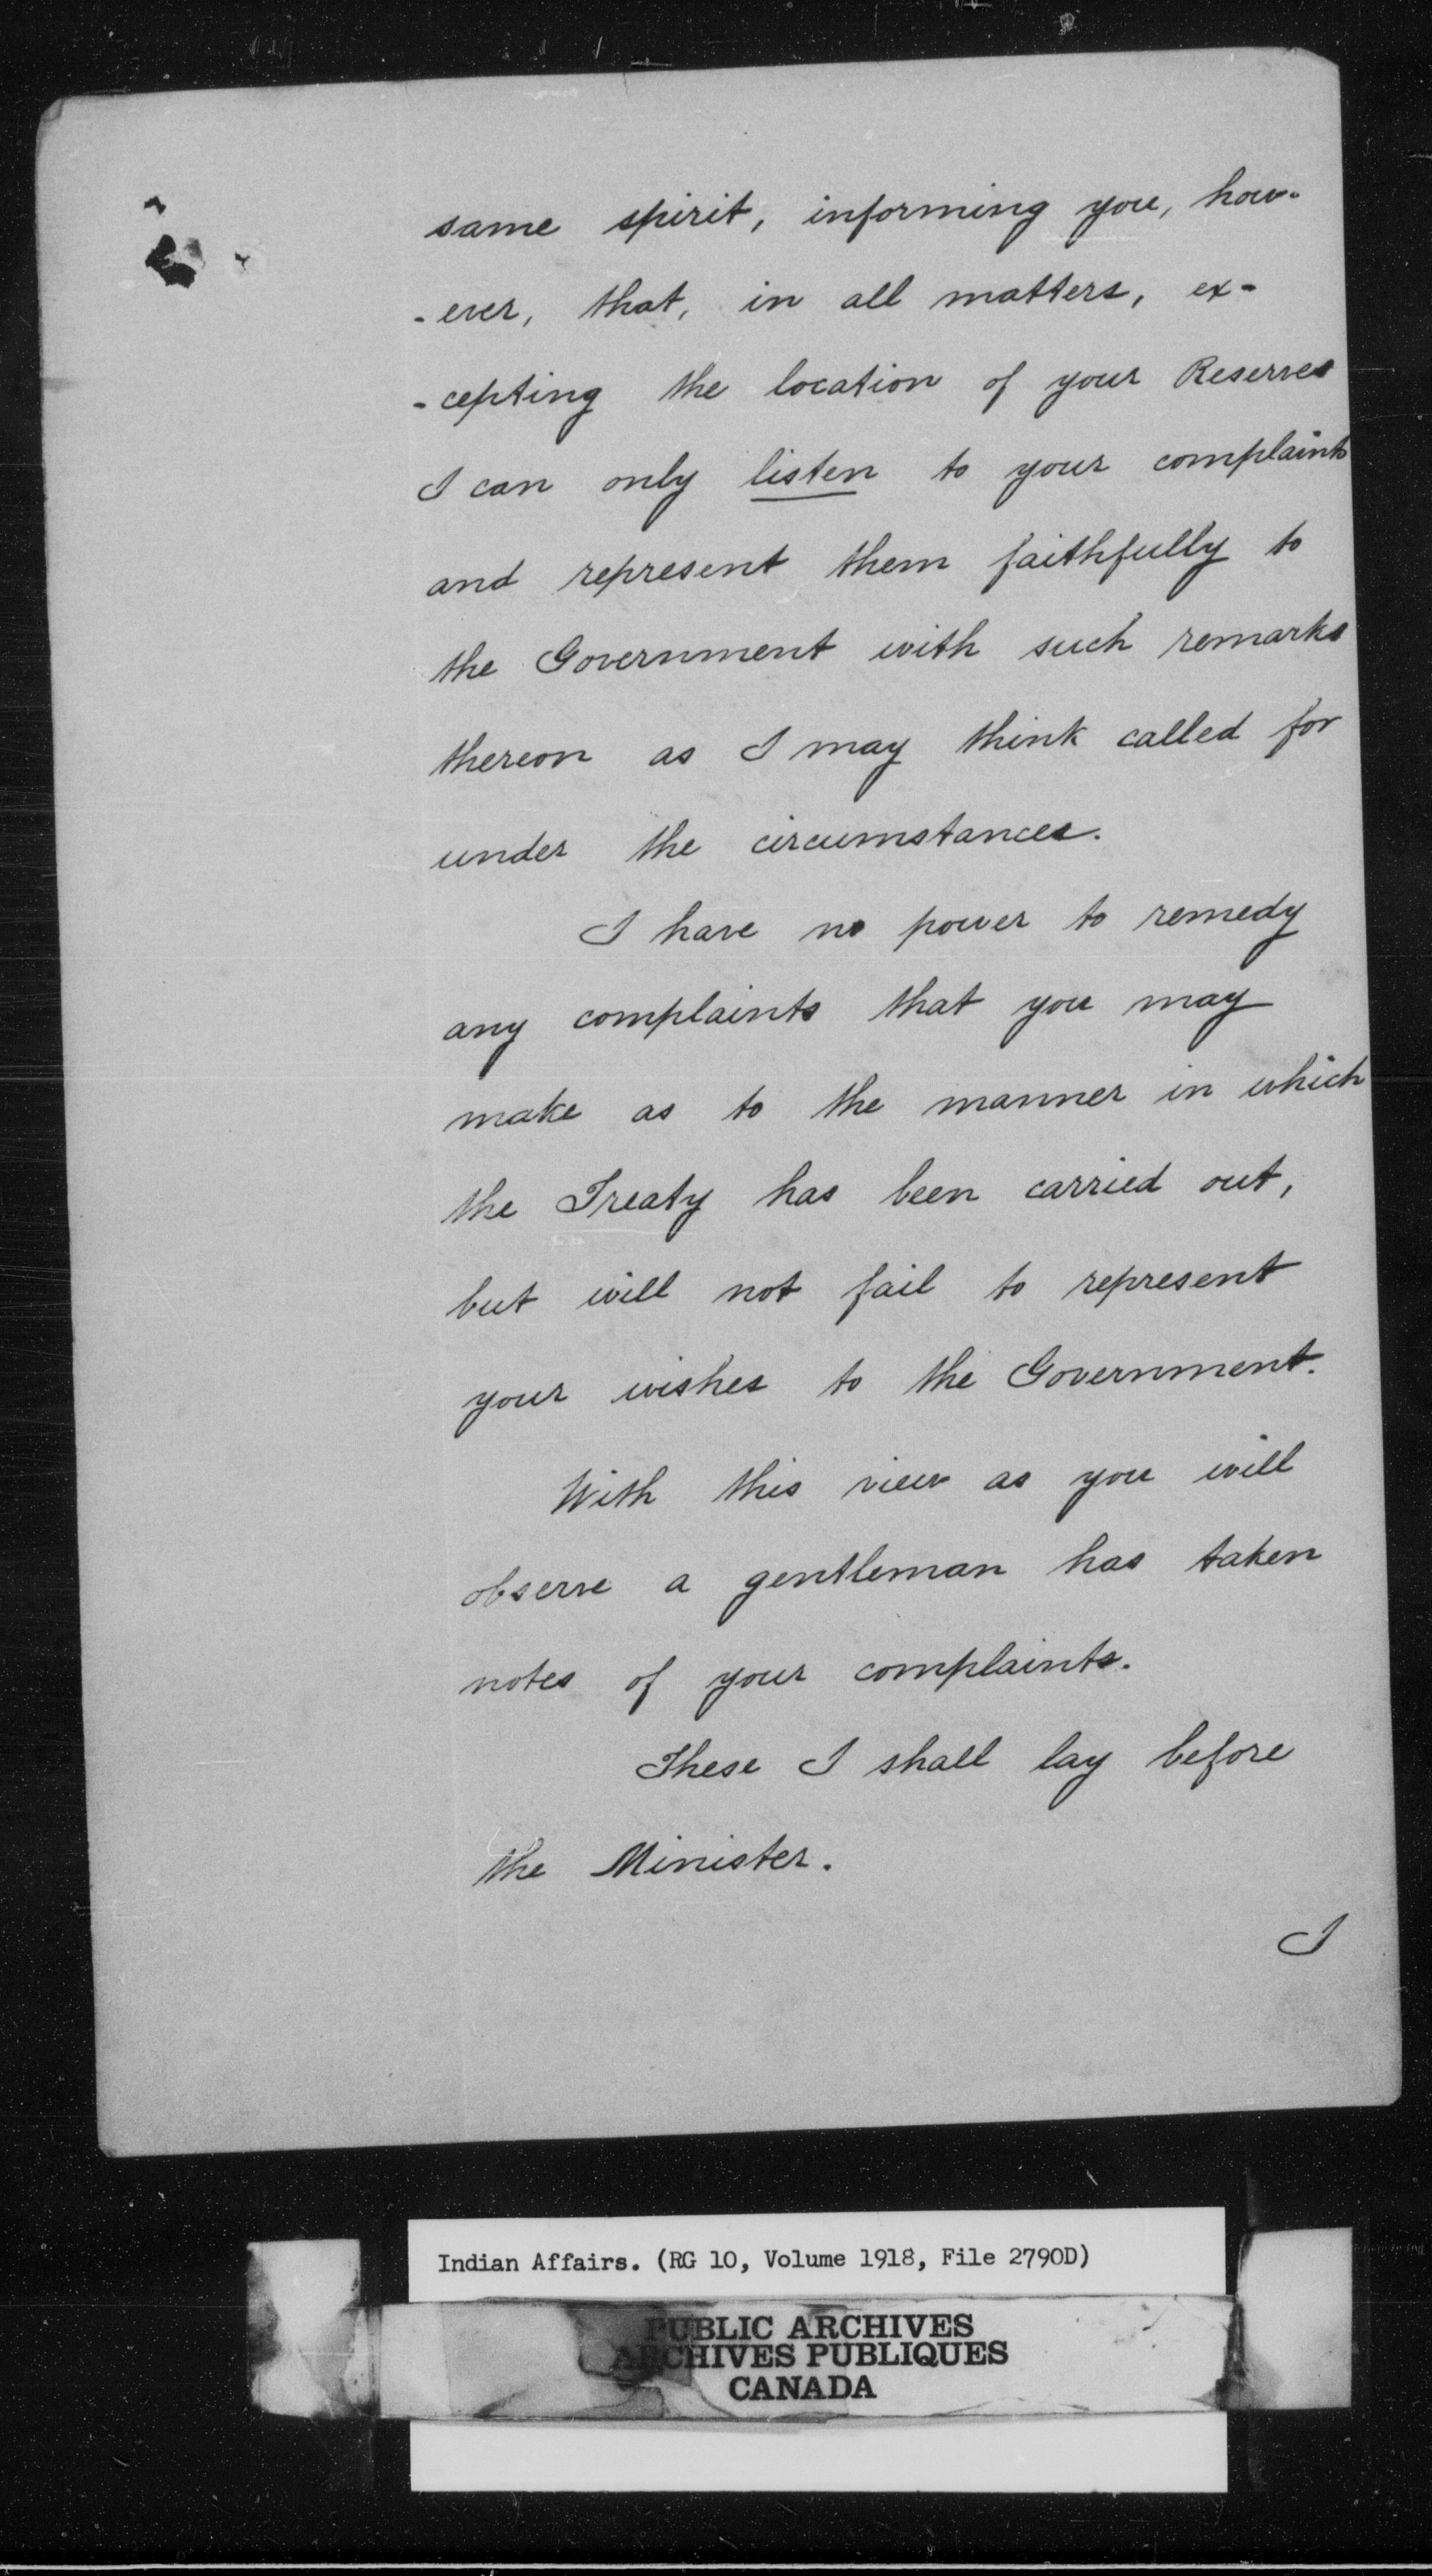 same spirit, informing you, how-
-ever, that, in all matters, ex-
-cepting the location of your Reserves
I can only listen to your complaints
and represent them faithfully to
the Government with such remarks
thereon as I may think called for
under the circumstances.
I have no power to remedy
any complaints that you may
make as to the manner in which
the Treaty has been carried out,
but will not fail to represent
your wishes to the Government.
With this view as you will
observe a gentleman has taken
notes of your complaints.
These I shall lay before
the Minister.
I
Indian Affairs. (RG 10, Volume 1918, File 2790D)
PUBLIC ARCHIVES
ARCHIVES PUBLIQUES
CANADA